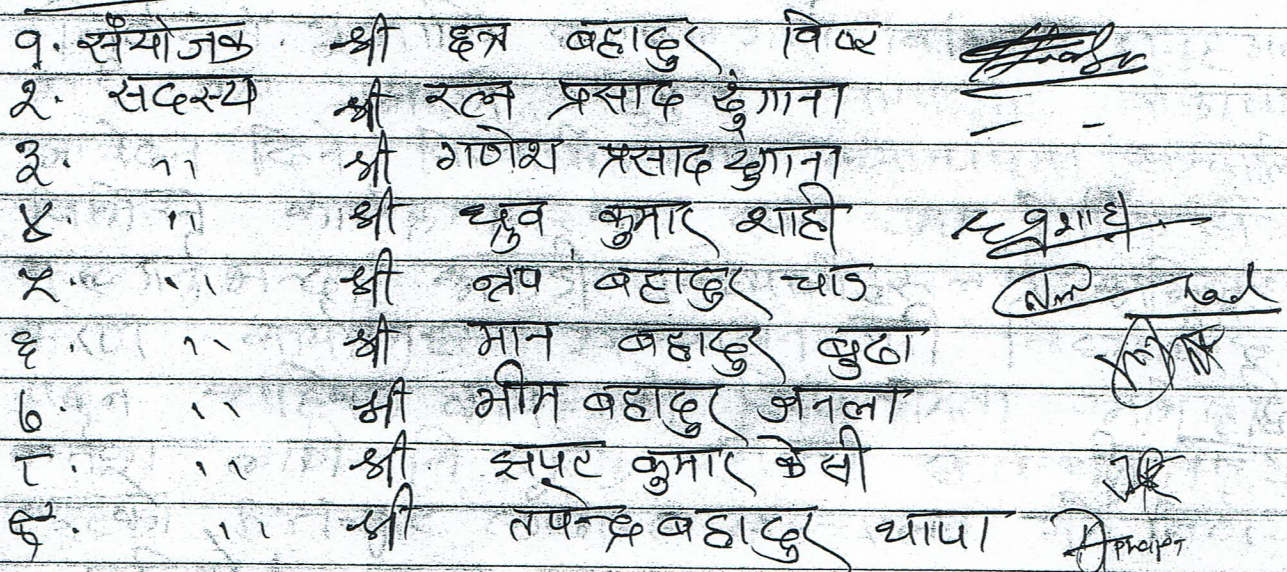 १. संयोजक श्री छत्र बहादुर विष्ट
२. सदस्य श्री रत्न प्रसाद ढुंगाना
३. ,, श्री गणेश प्रसाद ढुंगाना
४. ,, श्री ध्रुव कुमार शाही
५. ,, श्री बहादुर चाड
६. ,, श्री मान बहादुर बुढा
७. ,, श्री भीम बहादुर
८. ,, श्री झपट कुमार केसी
९. ,, श्री तपेन्द्र बहादुर थापा